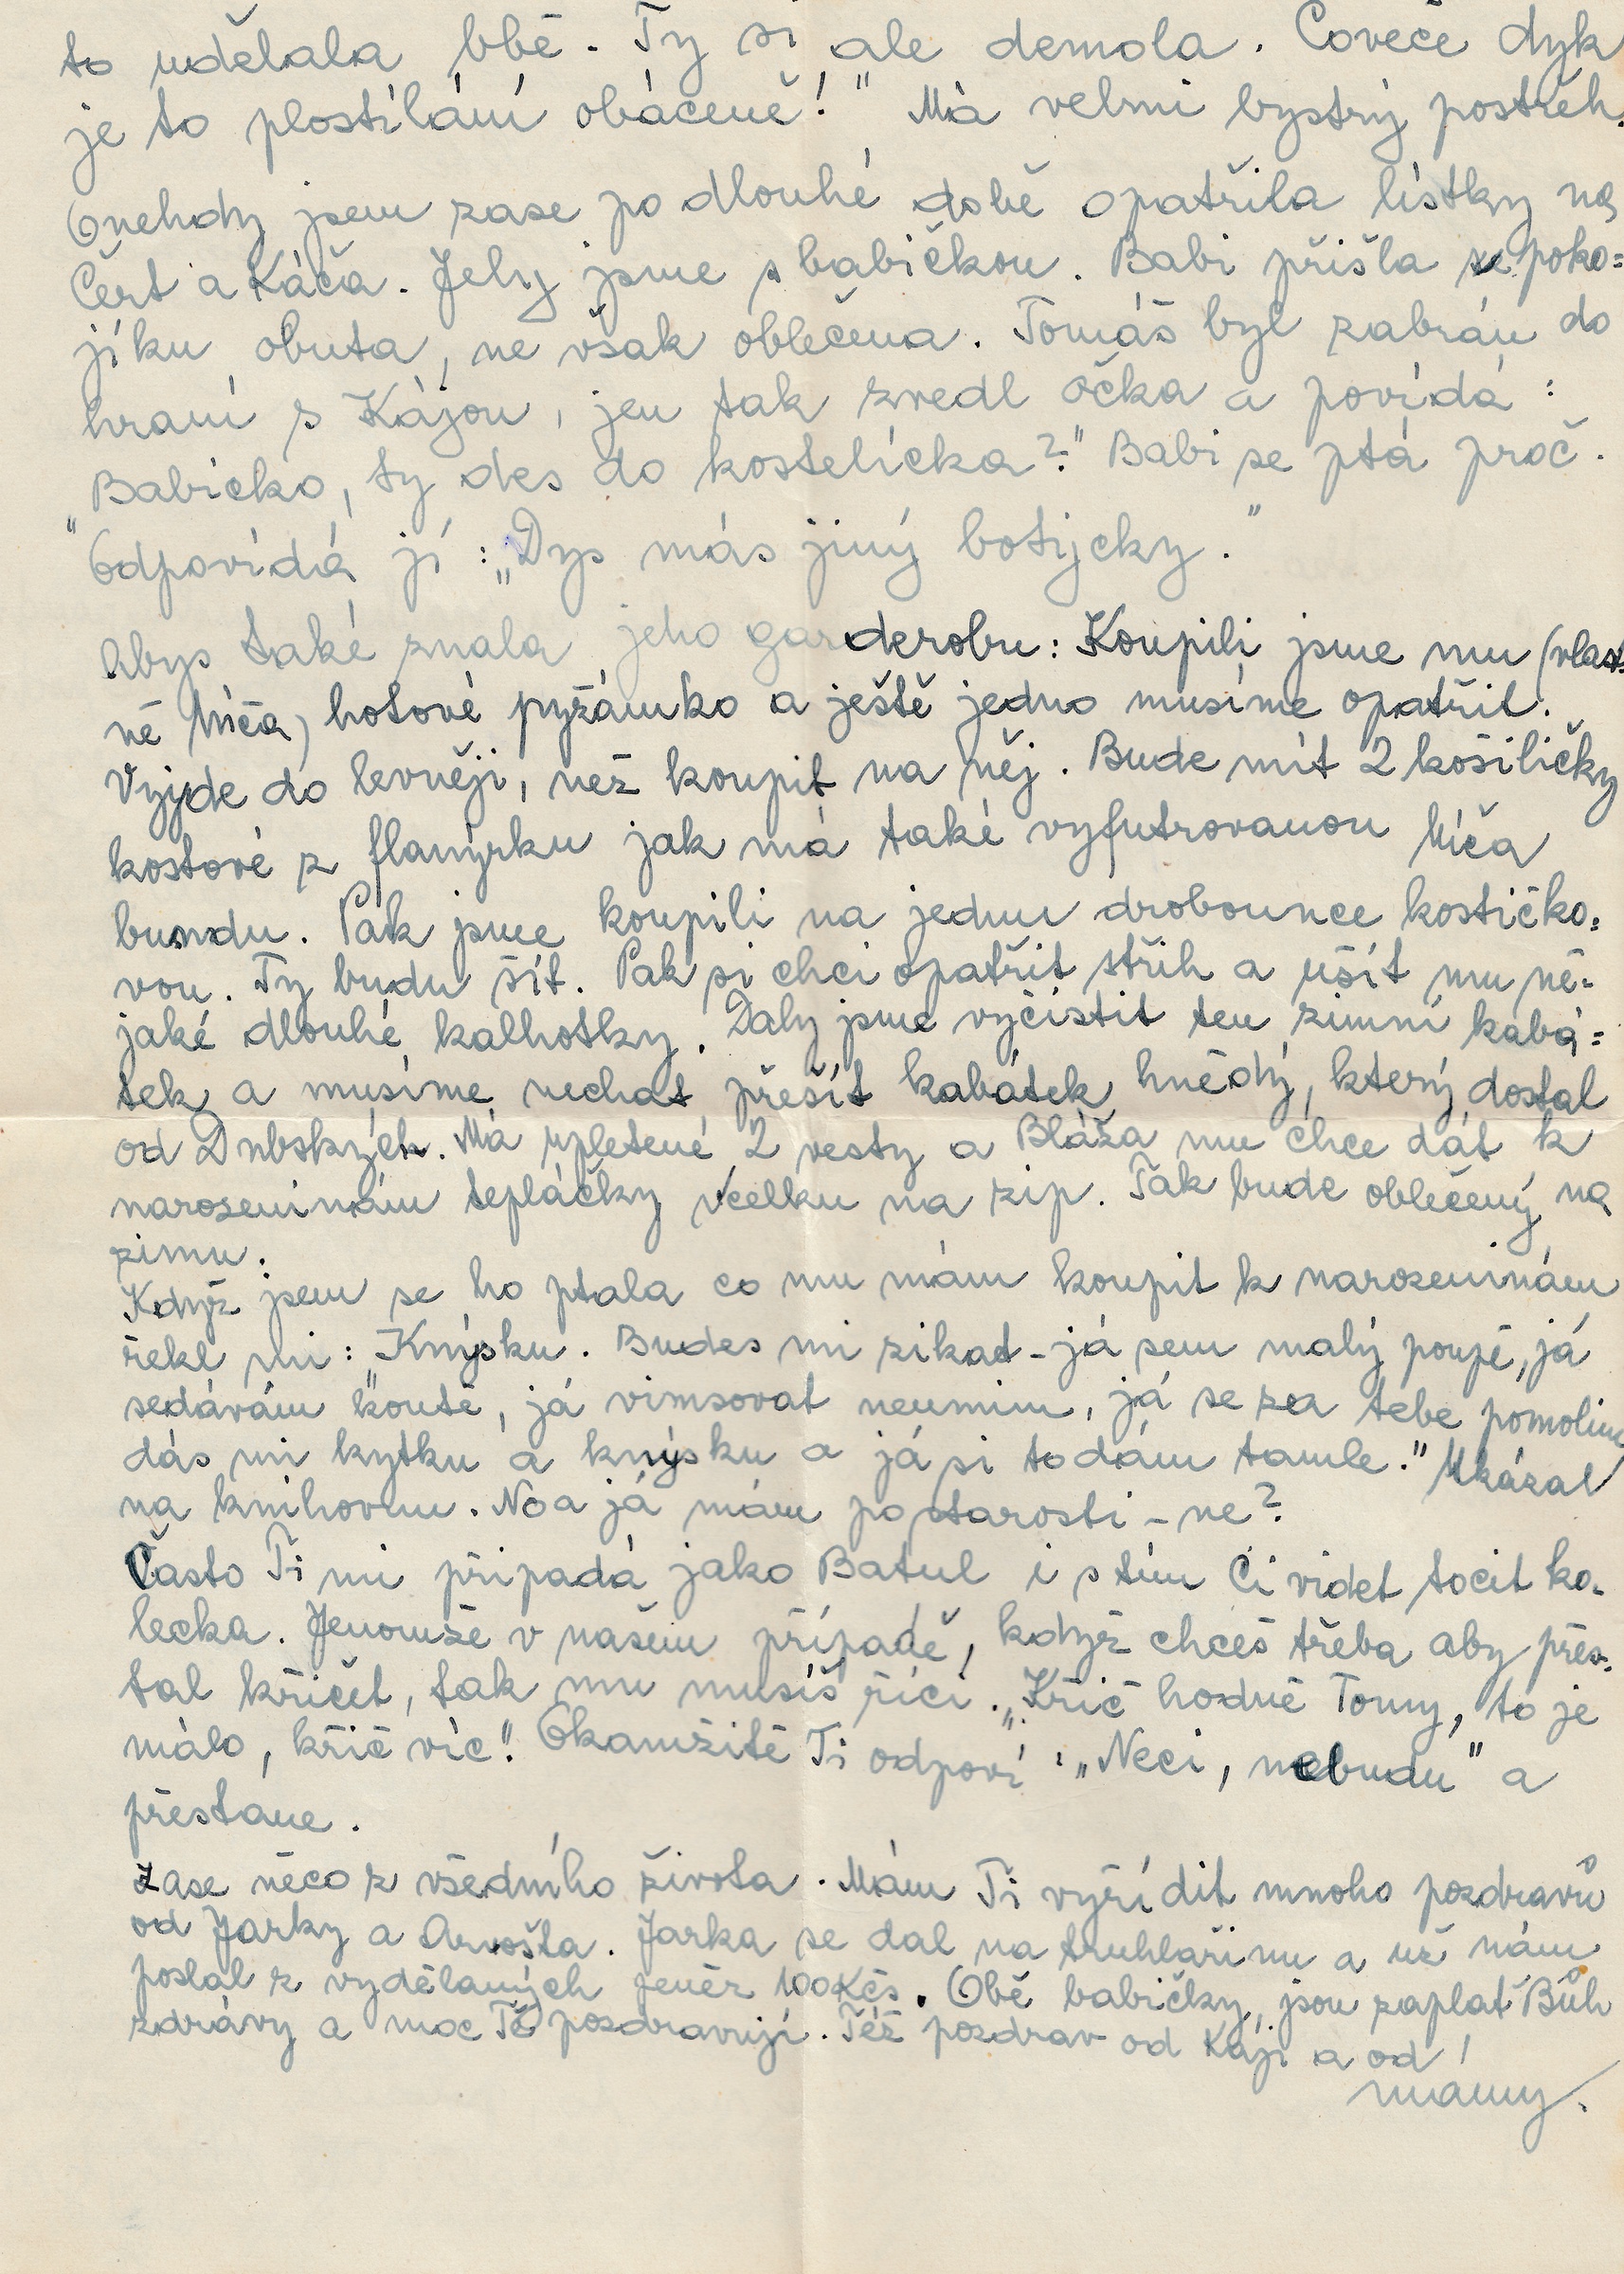 to udělala bbě. Ty si ale demola. Coveče dyk
je to plostílání obáceně!" Má velmi bystrý postřeh.
Onehdy jsem zase po dlouhé době opatřila lístky na
Čert a Káča. Jely jsme s babičkou. Babi přišla ku poko=
jíku obuta, ne však oblečena. Tomáš byl zabrán do
hraní s Kájou, jen tak zvedl očka a povídá:
"Babicko, ty des do kostelícka?" Babi se ptá proč.
Odpovídá jí: „Dys más jiný botijcky."
Abys také znala jeho garderobu: Koupili jsme mu (vlast
ně Míča) hotové pyžámko a ještě jedno musíme opatřit.
Vyjde to levněji, než koupit na něj. Bude mít 2 košiličky
kostové z flanýrku jak má také vyfutrovanou Míča
bundu. Pak jsme koupili na jednu drobounce kostičko=
vou. Ty budu šít. Pak si chci opatřit střih a ušít mu ně=
jaké dlouhé kalhotky. Daly jsme vyčistit ten zimní kabá=
tek a musíme nechat přešít kabátek hnědý, který dostal
od Dubských. Má upletené 2 vesty a Bláža mu chce dát k
narozeninám tepláčky vcelku na zip. Tak bude oblečený na
zimu.
Když jsem se ho ptala co mu mám koupit k narozeninám
řekl mi: „Knýsku. Budes mi zikad - já sem malý poupě, já
sedávám koutě, já vimsovat neumim, já se za tebe pomolim
dás mi kytku a knýsku a já si to dám tamle." Ukázal
na knihovnu. No a já mám po starosti - ne?
Často Ti mi připadá jako Batul i s tím Ci videt tocit ko=
lecka. Jenomže v našem případě, když chceš třeba aby přes=
tal křičet, tak mu musíš říci. „Křič hodně Tomy, to je
málo, křič víc". Okamžitě Ti odpoví: „Neci, nebudu" a
přestane.
Zase něco z všedního života. Mám Ti vyřídit mnoho pozdravů
od Jarky a Arnošta. Jarka se dal na truhlařinu a už nám
poslal z vydělaných peněz 100 Kčs. Obě babičky, jsou zaplať Bůh
zdrávy a moc Tě pozdravují. Též pozdrav od Káji a od
mámy.